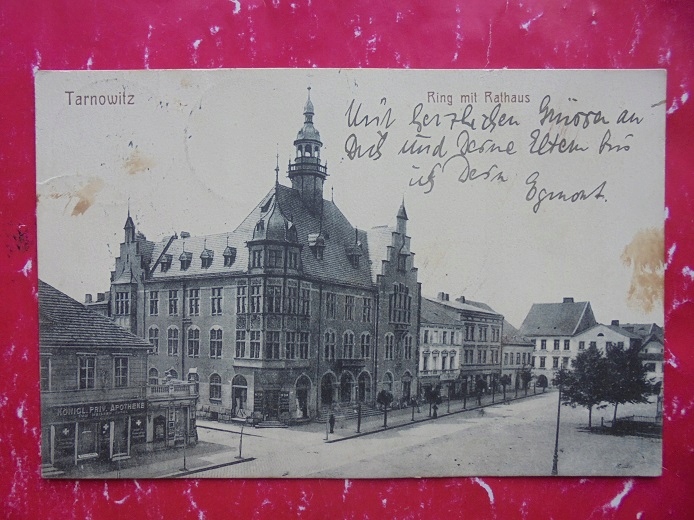 Tarnowitz
Ring mit Rathaus
Mit herzlichen Grüssen an
Dich und Deine Eltern bin
ich Dein Egmont.
KÖNIGL. PRIV. APOTHEKE